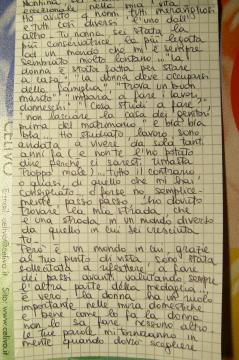 eccezionale nella mia vita
Ho avuto 2 nonni tutti meravigliosi
e tutti così diversi l'uno dall'
altro. Tu nonna sei stata la
più conservatrice la più legata
ad un mondo che mi è sempre
sembrato molto lontano... "la
donna è stata fatta per stare
a casa", "la donna deve occuparsi
della famiglia" "trova un buon
marito" "impara a fare i lavori
donneschi" "Cosa studi a fare",
"non lasciare la casa dei genitori
prima del matrimonio" e bla bla
bla. Ho studiato lavoro sono
andata a vivere da sola tanti
anni fa e non te l'ho potuto
dire perchè ci saresti rimasta
troppo male). Tutto il contrario
o quasi di quello che mi hai
consigliato e forse no semplice-
mente passo passo ho dovuto
trovare la mia strada che
è una strada in un mondo diverso
da quello in cui sei cresciuta
tu.
Però è un mondo in cui, grazie
al tuo punto di vista sono stata
sollecitata a riflettere a fare
dei passi avanti valutando sempre
l'altra parte della medaglia.
È vero, la donna ha un ruolo
importante nelle mura domestiche
e bene come lo fa la donna
non lo sa fare nessuno altro
Le tue parole mi torneranno in
mente quando dovrò scegliere
CELIVO
Sito: www.celivo.it